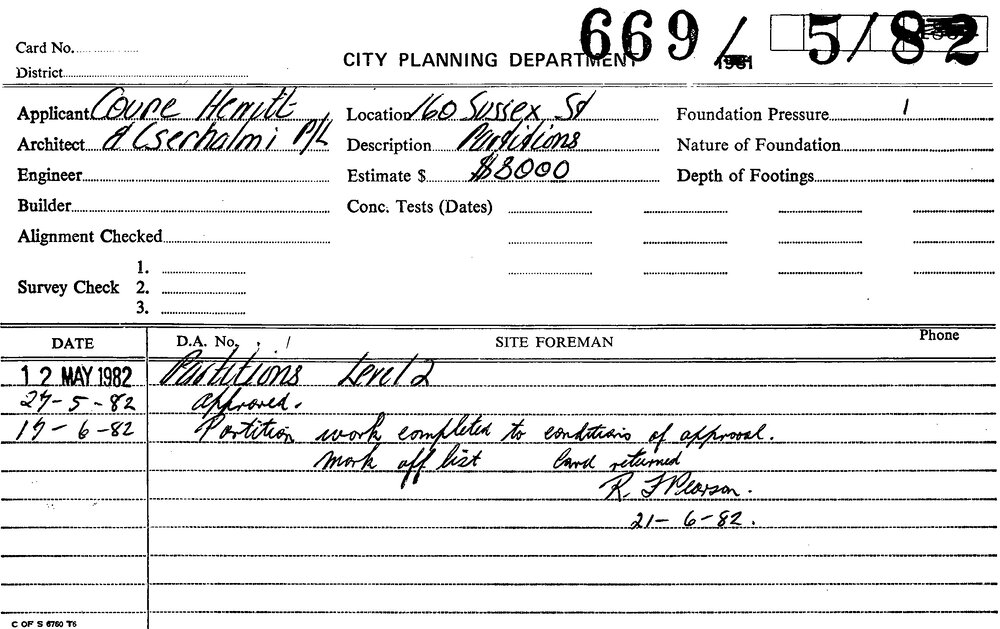 669/ 5/82
Card No.
CITY PLANNING DEPARTMENT 1981
District
Applicant Coune Hemitt Location 160 Sussex St Foundation Pressure
Architect & Cserhalmi P/L Description Partitions Nature of Foundation
Engineer Estimate $ $8000 Depth of Footings
Builder Conc. Tests (Dates)
Alignment Checked
1.
Survey Check 2.
3.
DATE D.A. No. / SITE FOREMAN Phone
12 MAY 1982 Partitions Level 2
27-5-82 approved.
17-6-82 Partition work completed to conditions of approval.
Mark off list Card returned
R. F Pearson.
21-6-82.
C OF S 6760 T6